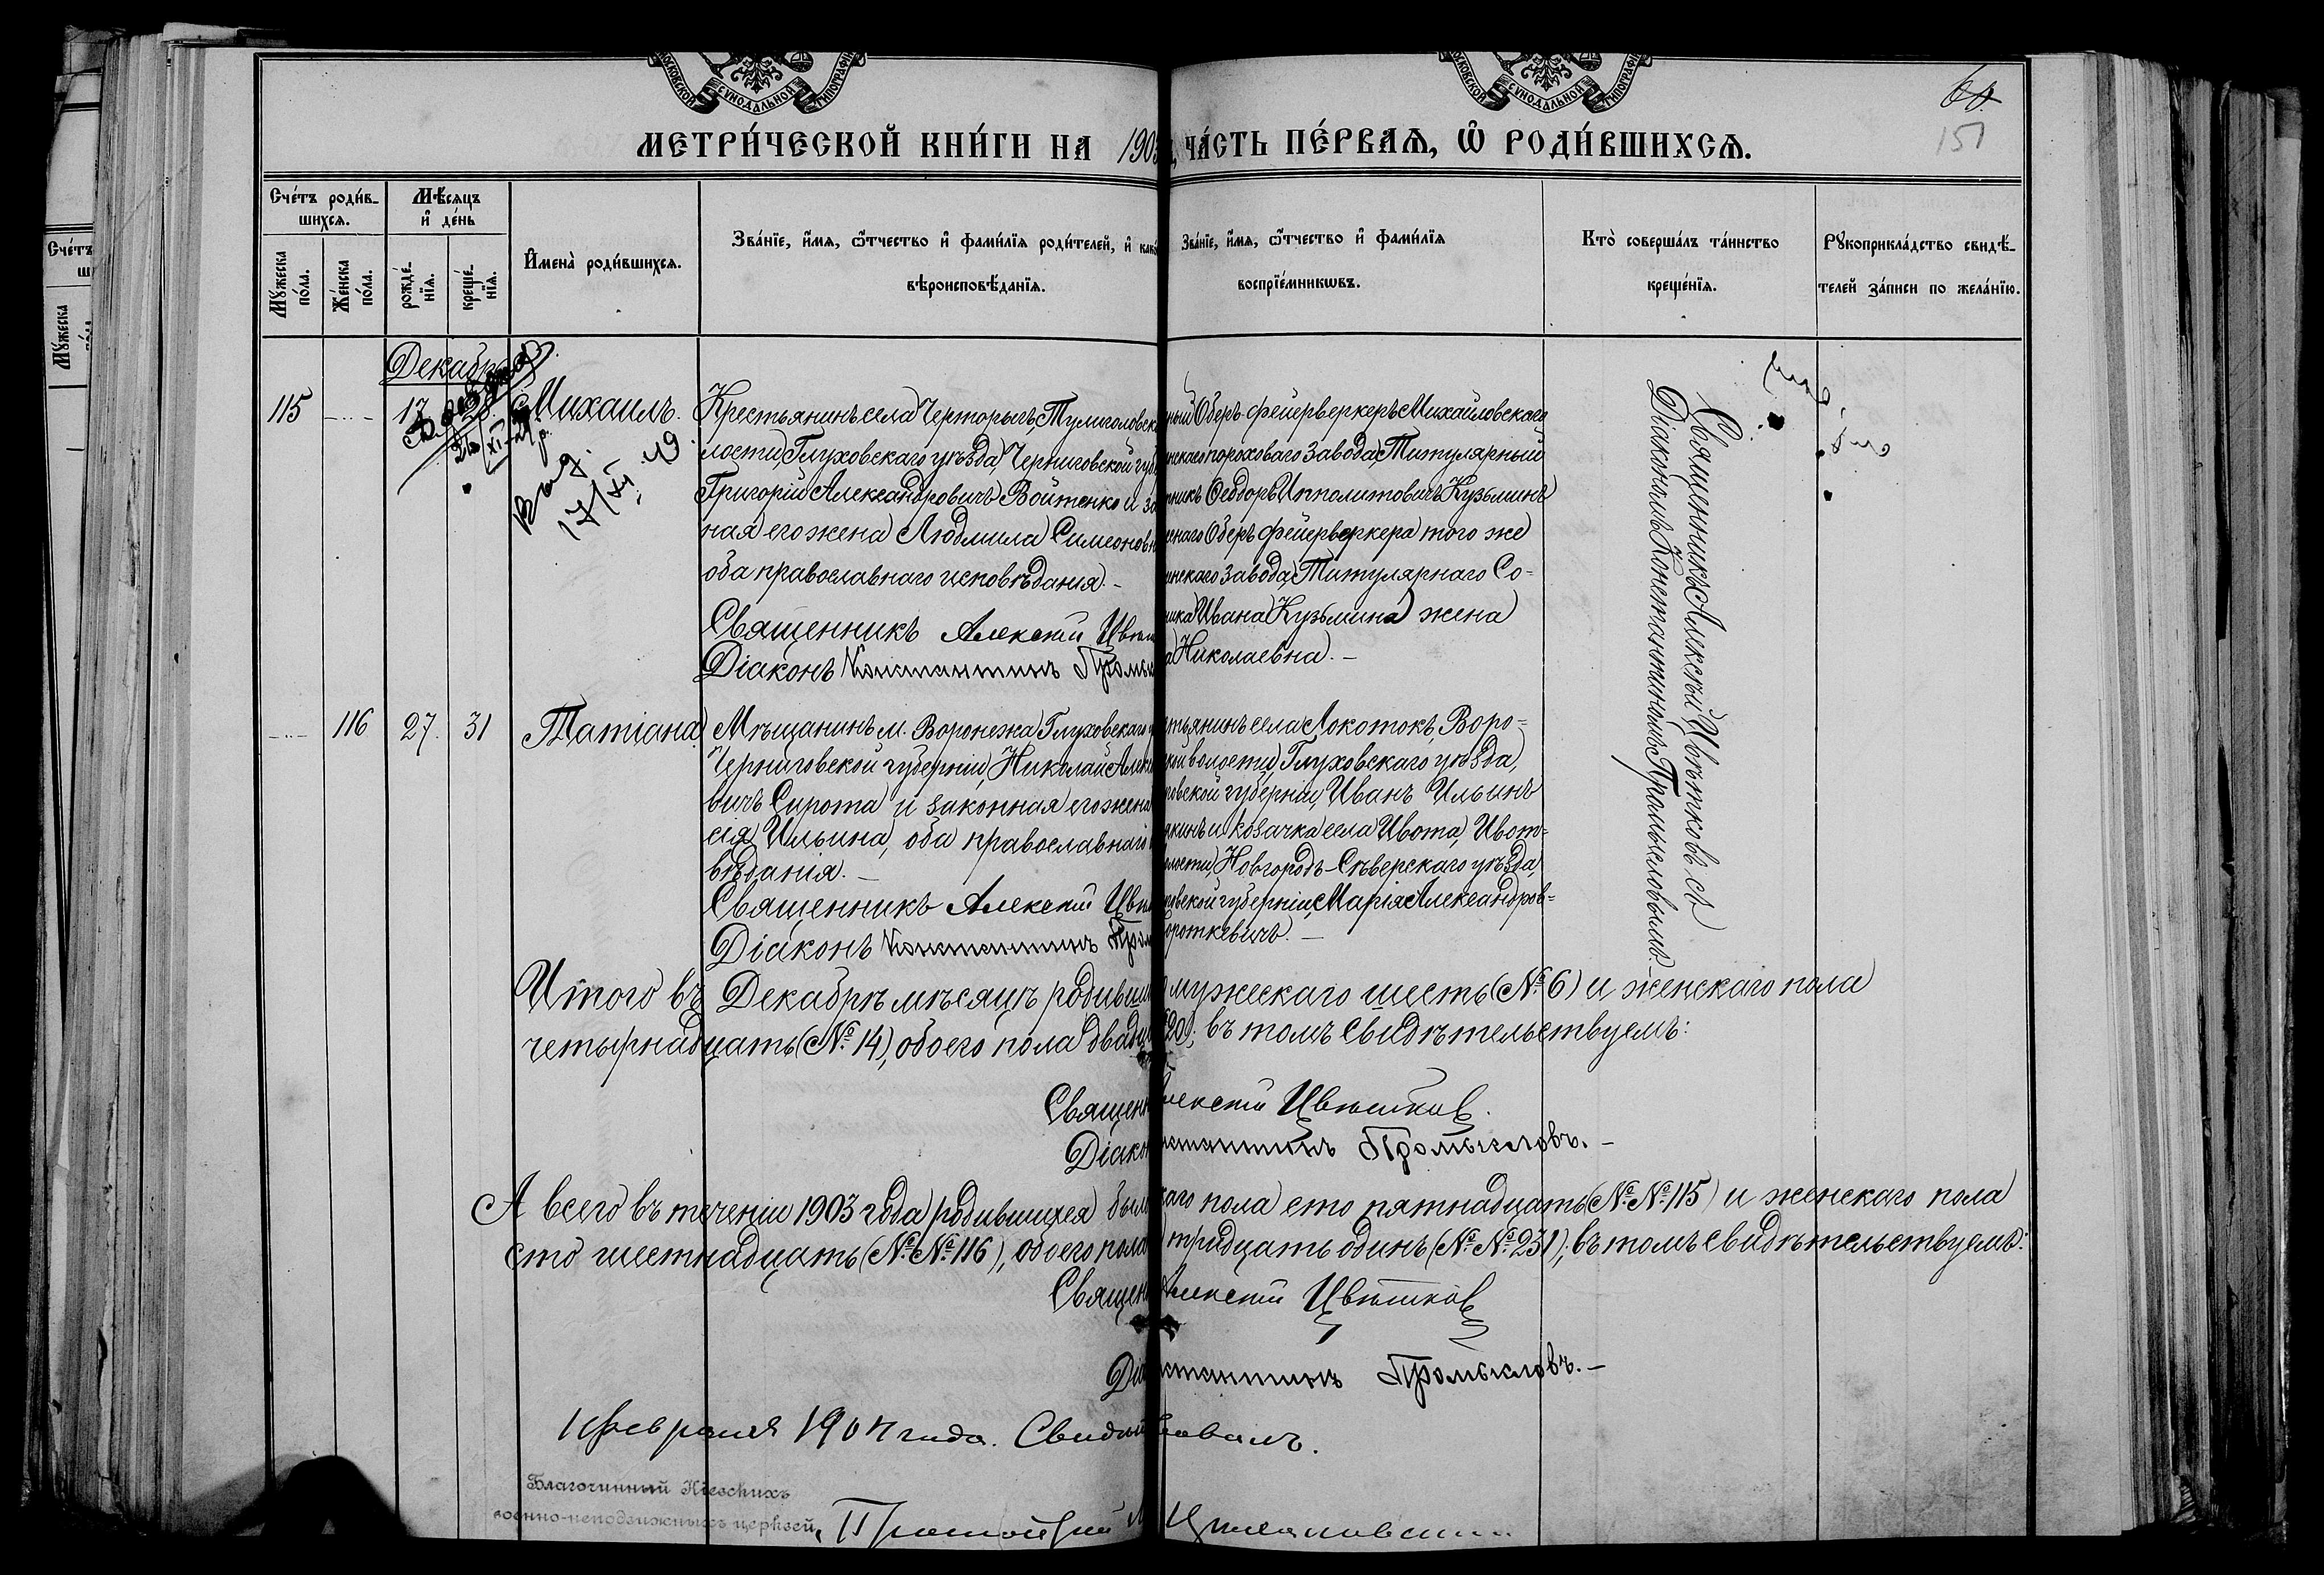 МОСКОВСКОЙ СУНОДАЛЬНОЙ ТИПОГРАФІ
МОСКОВСКОЙ СУНОДАЛЬНОЙ ТИПОГРАФІ
60
151
МЕТРИ́ЧЕСКОЙ КНИ́ГИ НА 1903
, ЧА́СТЬ ПЕ́РВАѦ, Ѡ҆ РОДИ́ВШИХСѦ.
Сче́тъ роди́в-
шихсѧ.
Мѣ́сѧцъ
и҆ де́нь
Мꙋ́жеска
по́ла.
Же́нска
по́ла.
рожде́-
нїѧ.
креще́-
нїѧ.
И҆мена̀ роди́вшихсѧ.
Зва́нїе, и҆́мѧ, ѻ҆́тчество и҆ фами́лїѧ роди́телей, и҆ како
вѣроисповѣ́данїѧ.
Зва́нїе, и҆́мѧ, ѻ҆́тчество и҆ фами́лїѧ
воспрїе́мникѡвъ.
Кто̀ соверша́лъ та́инство
креще́нїѧ.
Рꙋкоприкла́дство свидѣ́-
телей за́писи по жела́нїю.
Сче́тъ
Мꙋ́жеска
Декабрь
115 - 17 28 Михаилъ.
Выд.
17/XI 49
Крестьянинъ села Черторыгъ, Тулиголовск
лости, Глуховскаго уѣзда, Черниговской губ
Григорій Александровичъ Войтенко и за
ная его жена Людмила Симеоновн
оба православнаго исповѣданія. -
Священникъ Алексѣй Цвѣт
Діаконъ Константинъ Промы
ный Оберъ-фейерверкеръ Михайловскаго
нскаго пороховаго завода, Титулярный
тникъ Ѳеодоръ Ипполитовичъ Кузьминъ
еннаго Оберъ фейерверкера того же
инскаго завода, Титулярнаго Со-
ника Ивана Кузьмина жена
а Николаевна. -
Священникъ Алексѣй Цвѣтковъ съ
Діакономъ Константиномъ Промысловымъ.
- 116 27. 31 Татіана
Мѣщанинъ м. Воронежа Глуховскаго у
Черниговской губерніи, Николай Алекс
вичъ Сирота и законная его жена
сія Ильина, оба православнаго
вѣданія. -
Священникъ Алексѣй Цвѣт
Діаконъ Константинъ Пром
стьянинъ села Локотокъ, Воро=
кой волости, Глуховскаго уѣзда,
говской губерніи, Иванъ Ильинъ
якинъ и козачка села Ивота, Ивот=
олости, Новгородъ-Сѣверскаго уѣзда,
говской губерніи, Марія Александров=
ороткевичъ. -
Итого въ Декабрѣ мѣсяцѣ родивши мужескаго шесть (№ 6) и женскаго пола
четырнадцать (№ 14), обоего пола двадц 20); въ томъ свидѣтельствуемъ:
Священ лексѣй Цвѣтковъ.
Діакон нстантинъ Промысловъ. -
А всего въ теченіи 1903 года родившихся было каго пола сто пятнадцать (№№ 115) и женскаго пола
сто шестнадцать (№№ 116), обоего пола тридцать одинъ (№№ 231); въ томъ свидѣтельствуемъ:
Священ Алексѣй Цвѣтковъ
Діа нстантинъ Промысловъ. -
1 Февраля 1904 года. Свидѣт вовалъ.
Благочинный Кіевскихъ
военно-неподвижныхъ церквей,
Протоіерей